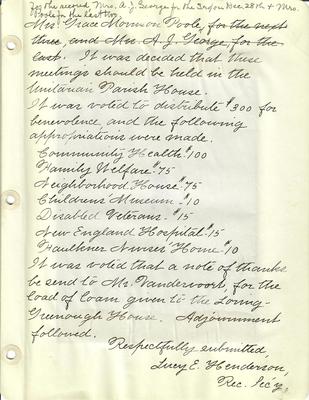 for the second, Mrs. A. J. George for the 3rd on Dec. 28th & Mrs.
Poole for the last two.
Mrs. Grace Mormon Poole, for the next
three, and Mrs. A. J. George, for the
last. It was decided that these
meetings should be held in the
Unitarian Parish House.
It was voted to distribute $300 for
benevolence and the following
appropriations were made.
Community Health $100
Family Welfare $75
Neighborhood House $75
Childrens Museum $10
Disabled Veterans $15
New England Hospital $15
Faulkner Nurses' Home $10
It was voted that a note of thanks
be send to Mr. Vandervoort, for the
load of loam given to the Loring-
Greenough House. Adjournment
followed.
Respectfully submitted,
Lucy E. Henderson,
Rec. Sec'y.